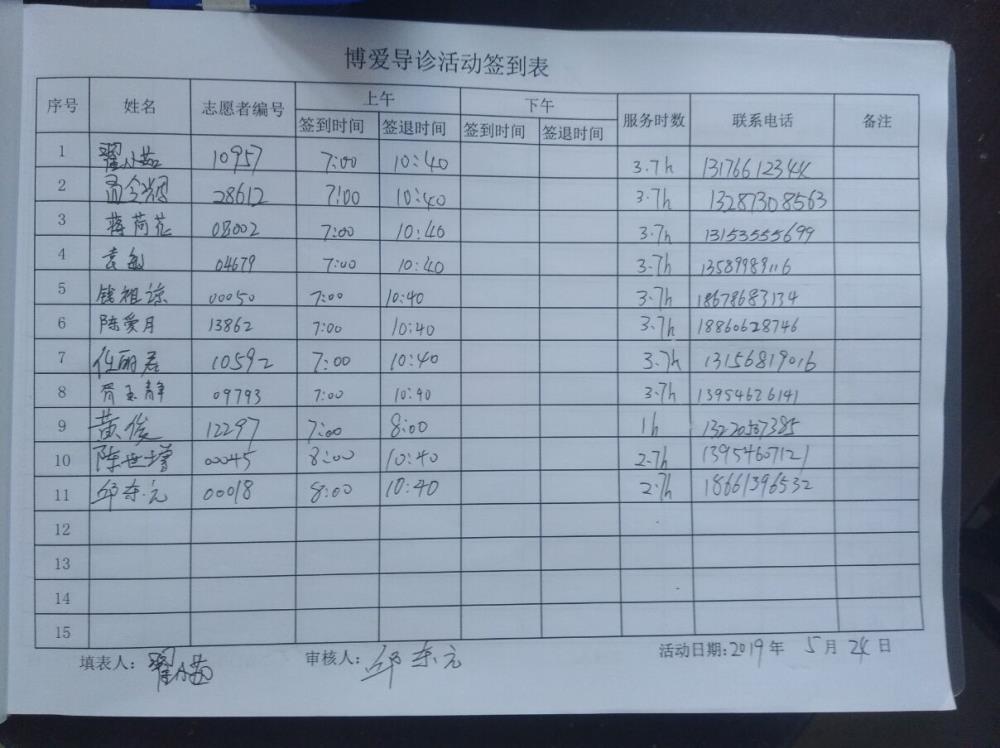 博爱导诊活动签到表
序号 姓名 志愿者编号 上午 下午 服务时数 联系电话 备注
签到时间 签退时间 签到时间 签退时间
1 翟小茹 10957 7:00 10:40 3.7h 13176612344
2 28612 7:00 10:40 3.7h 13287308563
3 蒋荷花 08002 7:00 10:40 3.7h 13153555699
4 袁敏 04679 7:00 10:40 3.7h 13589989116
5 钱祖谅 00050 7:00 10:40 3.7h 18678683134
6 陈爱月 13862 7:00 10:40 3.7h 18860628746
7 任丽君 10592 7:00 10:40 3.7h 13156819016
8 胥玉静 09793 7:00 10:40 3.7h 13954626141
9 黄俊 12297 7:00 8:00 1h 13220507385
10 陈世增 00045 8:00 10:40 2.7h 13954607121
11 邱东元 00018 8:00 10:40 2.7h 18661396532
12
13
14
15
填表人: 翟小茹 审核人: 邱东元 活动日期:2019年 5月 24日